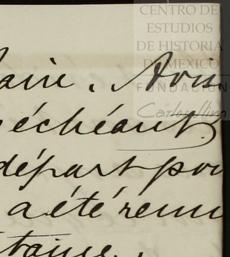 CENTRO DE
ESTUDIOS
DE HISTORIA
DE MEXICO
FUNDACIÓN
aire. Avon
échéant
départ pou
a été remi